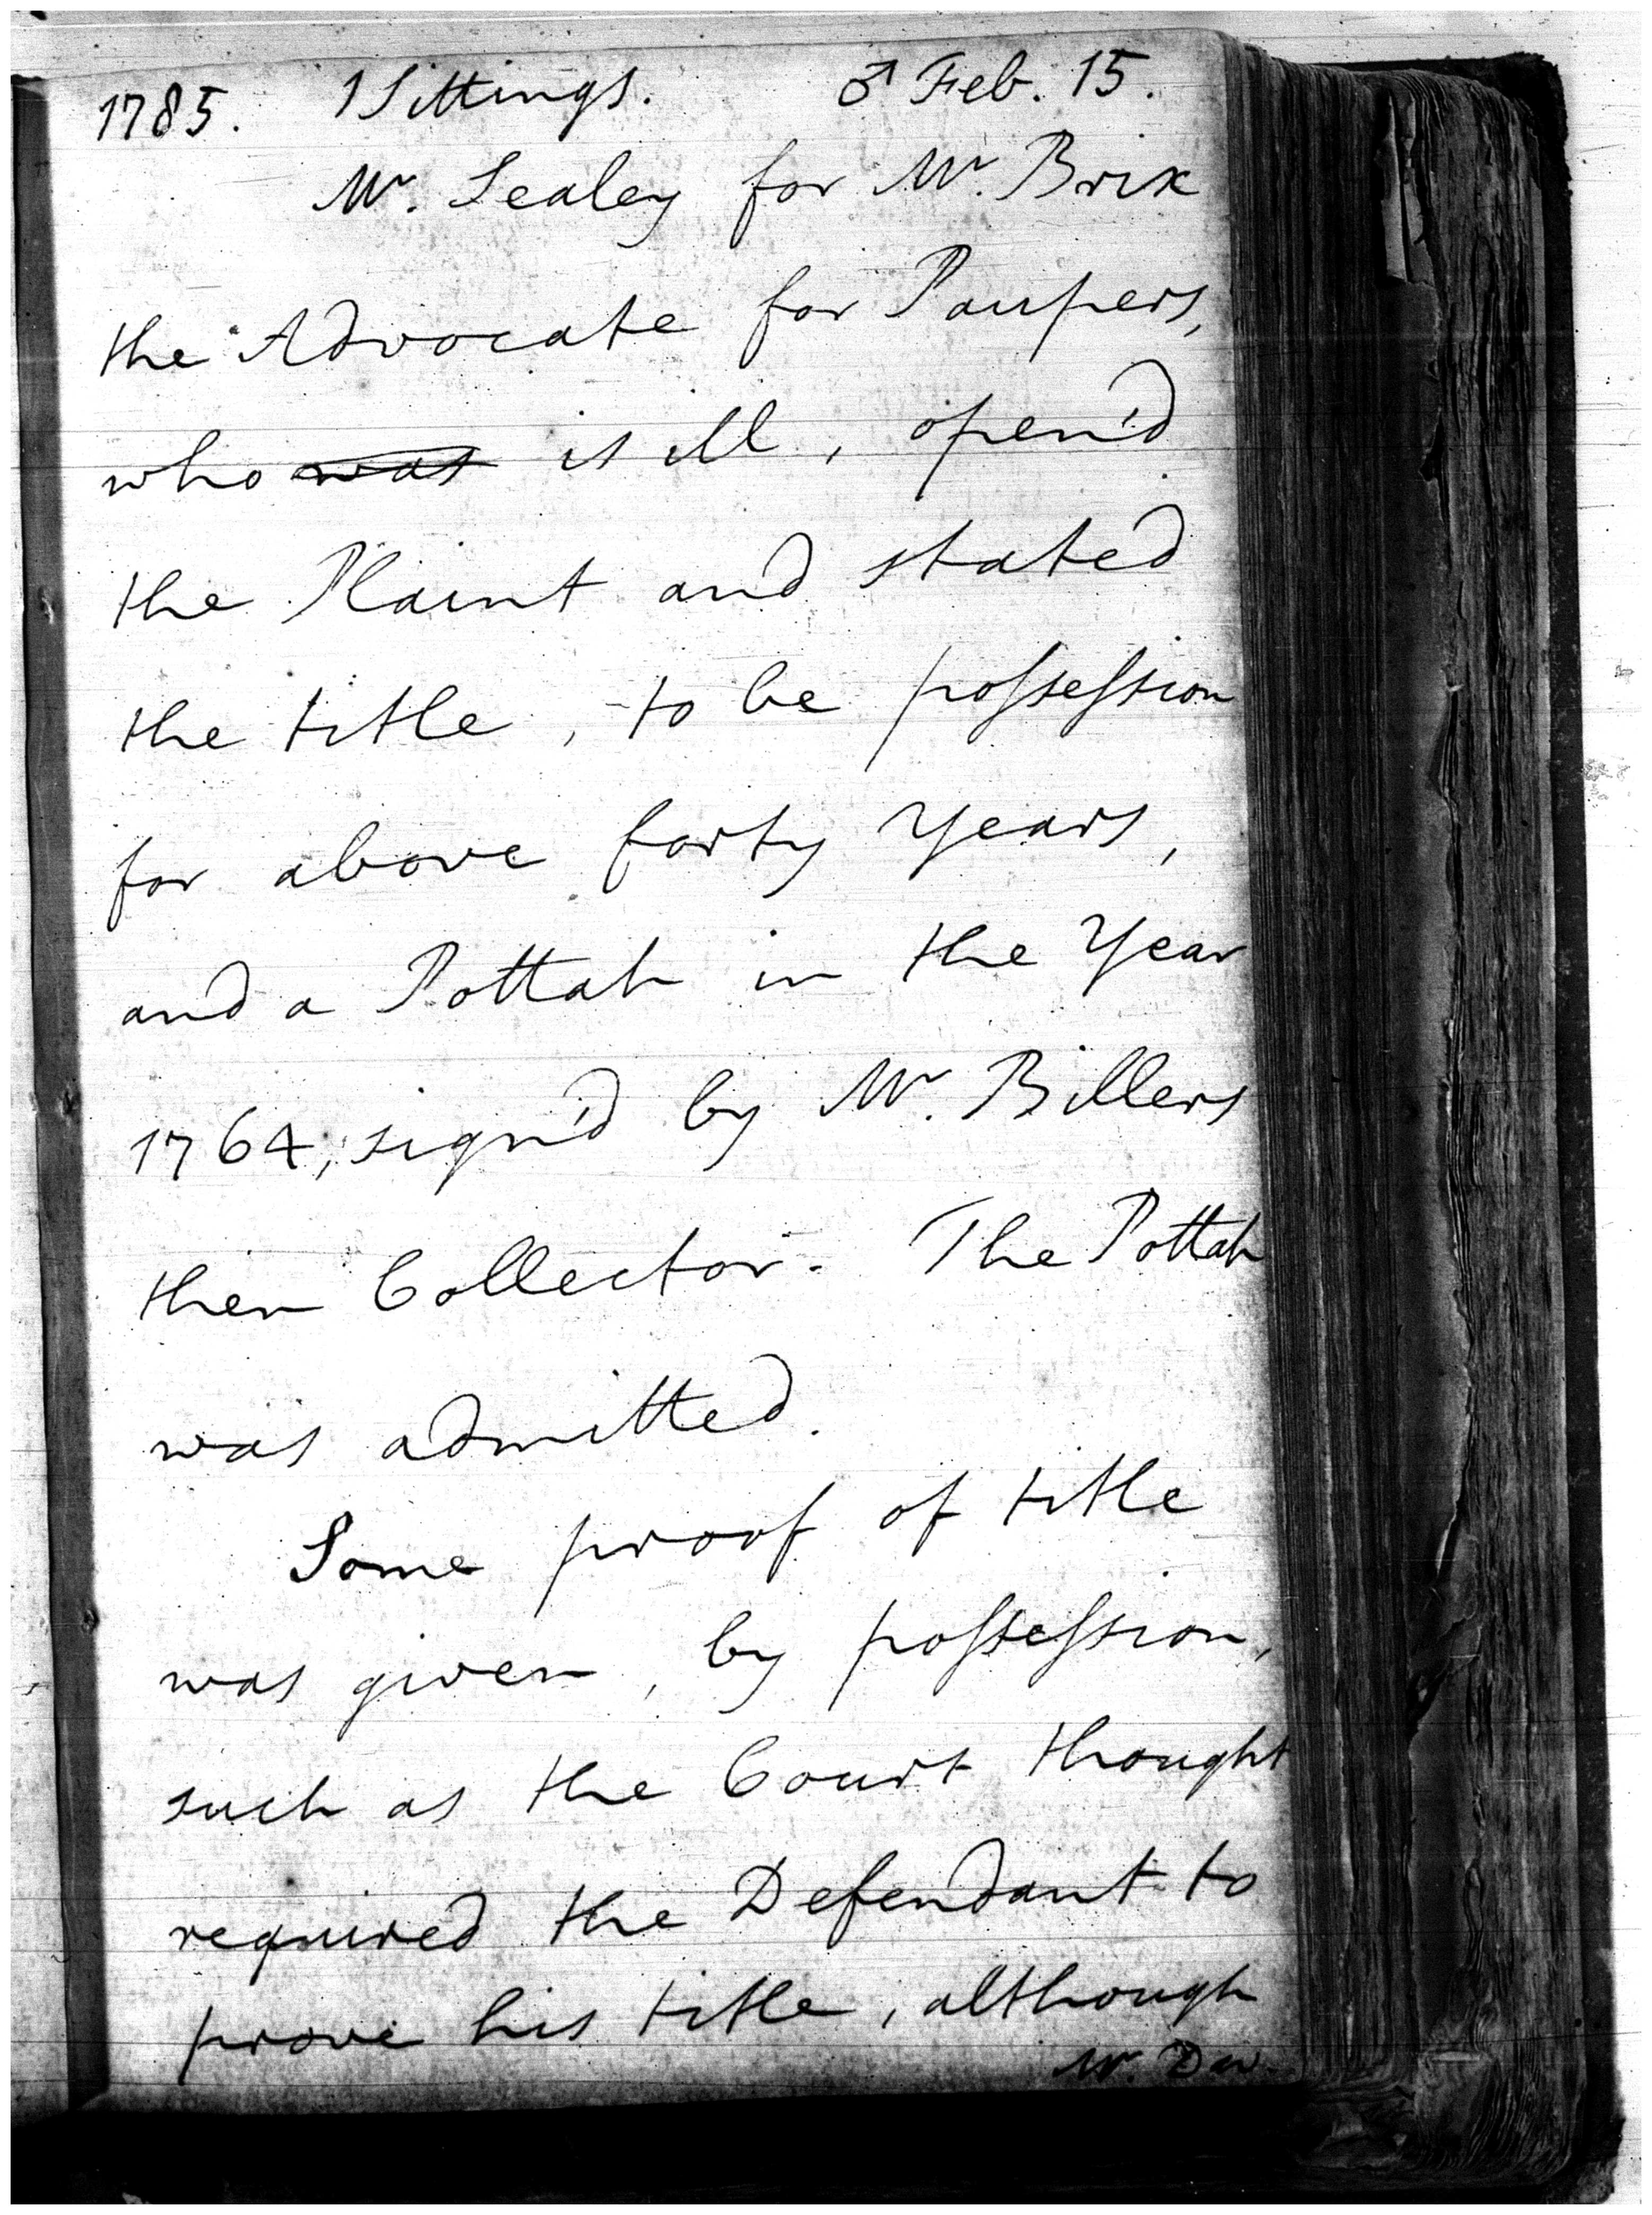 1785. 1 Sittings. ♂ Feb. 15.
Mr. Sealey for Mr. Brix
the Advocate for Paupers,
who was is ill, open'd
the Plaint and stated
the title, to be possession
for above forty Years,
and a Pottah in the Year
1764, sign'd by Mr. Billers
then Collector. The Pottah
was admitted.
Some proof of title
was given, by possession,
such as the Court thought
required the Defendant to
prove his title, although
Mr. Dav-